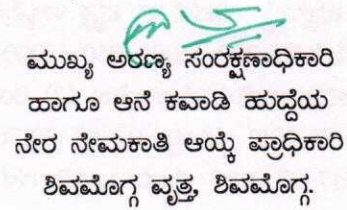 ಮುಖ್ಯ ಅರಣ್ಯ ಸಂರಕ್ಷಣಾಧಿಕಾರಿ
ಹಾಗೂ ಆನೆ ಕವಾಡಿ ಹುದ್ದೆಯ
ನೇರ ನೇಮಕಾತಿ ಆಯ್ಕೆ ಪ್ರಾಧಿಕಾರಿ
ಶಿವಮೊಗ್ಗ ವೃತ್ತ, ಶಿವಮೊಗ್ಗ.